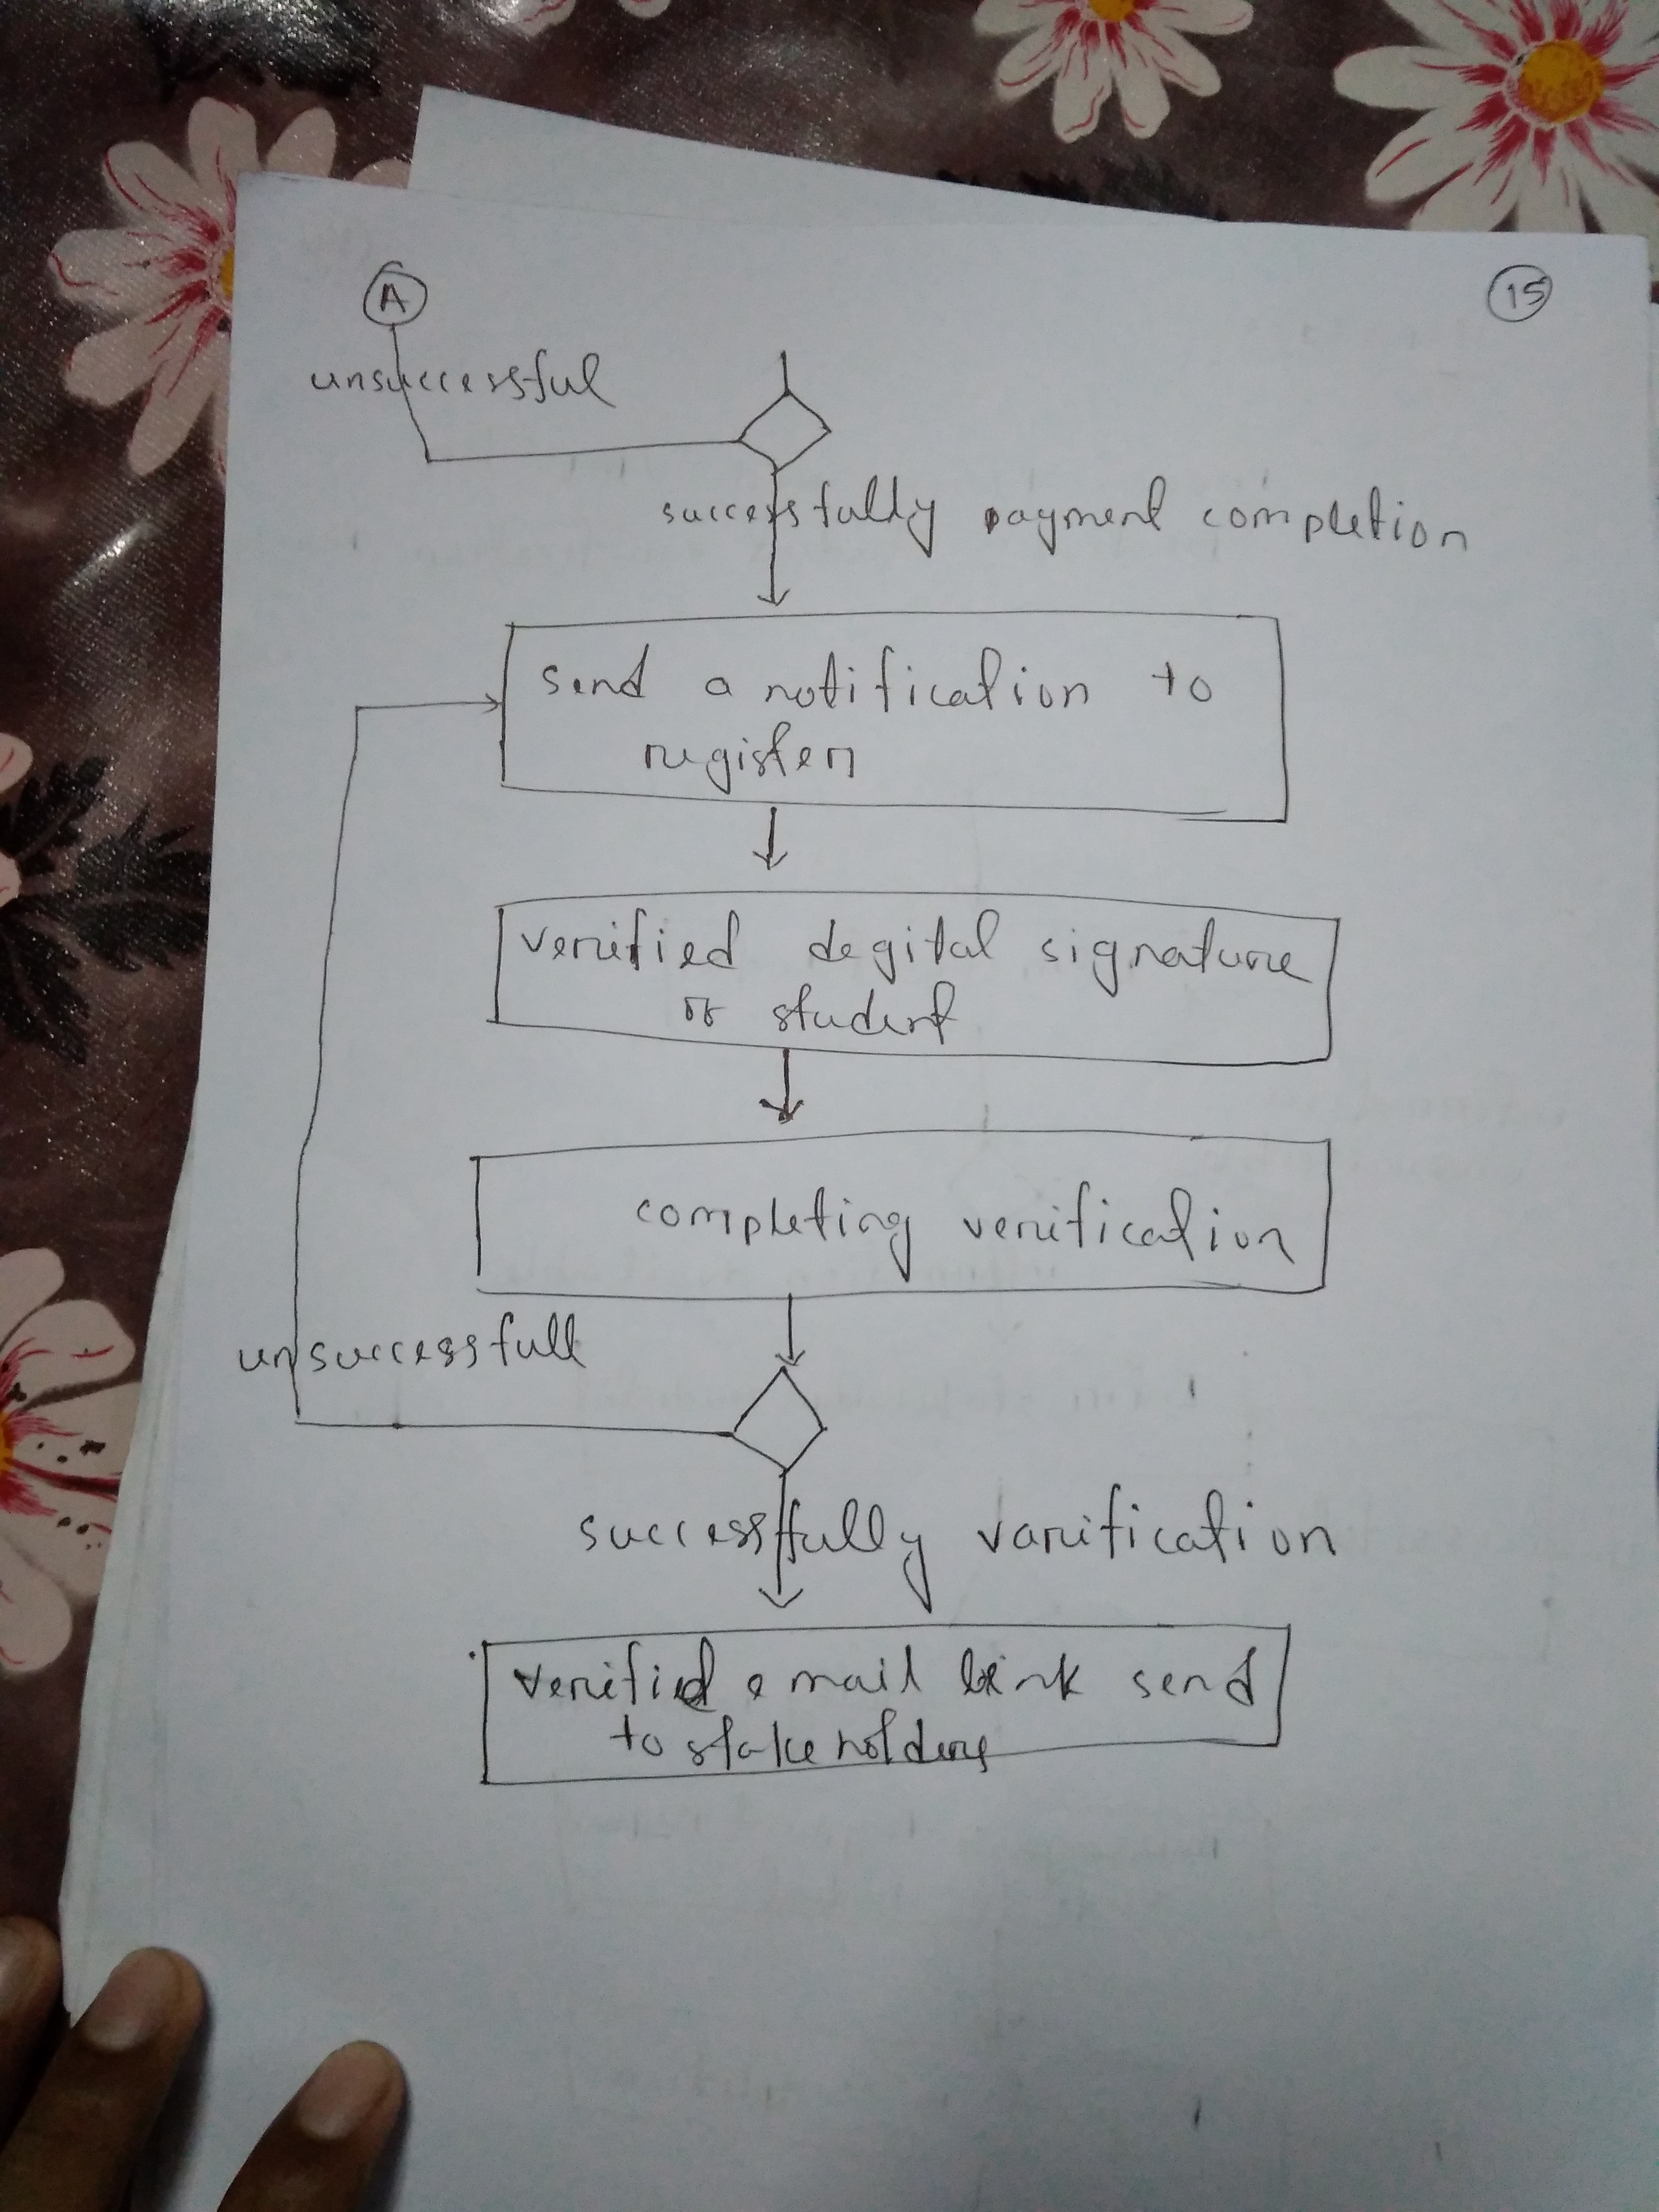 A
15
unsuccessful
successfully payment completion
send a notification to
register
verified degital signature
of student
completing verification
unsuccessfull
successfully varification
verified email link send
to stakeholders